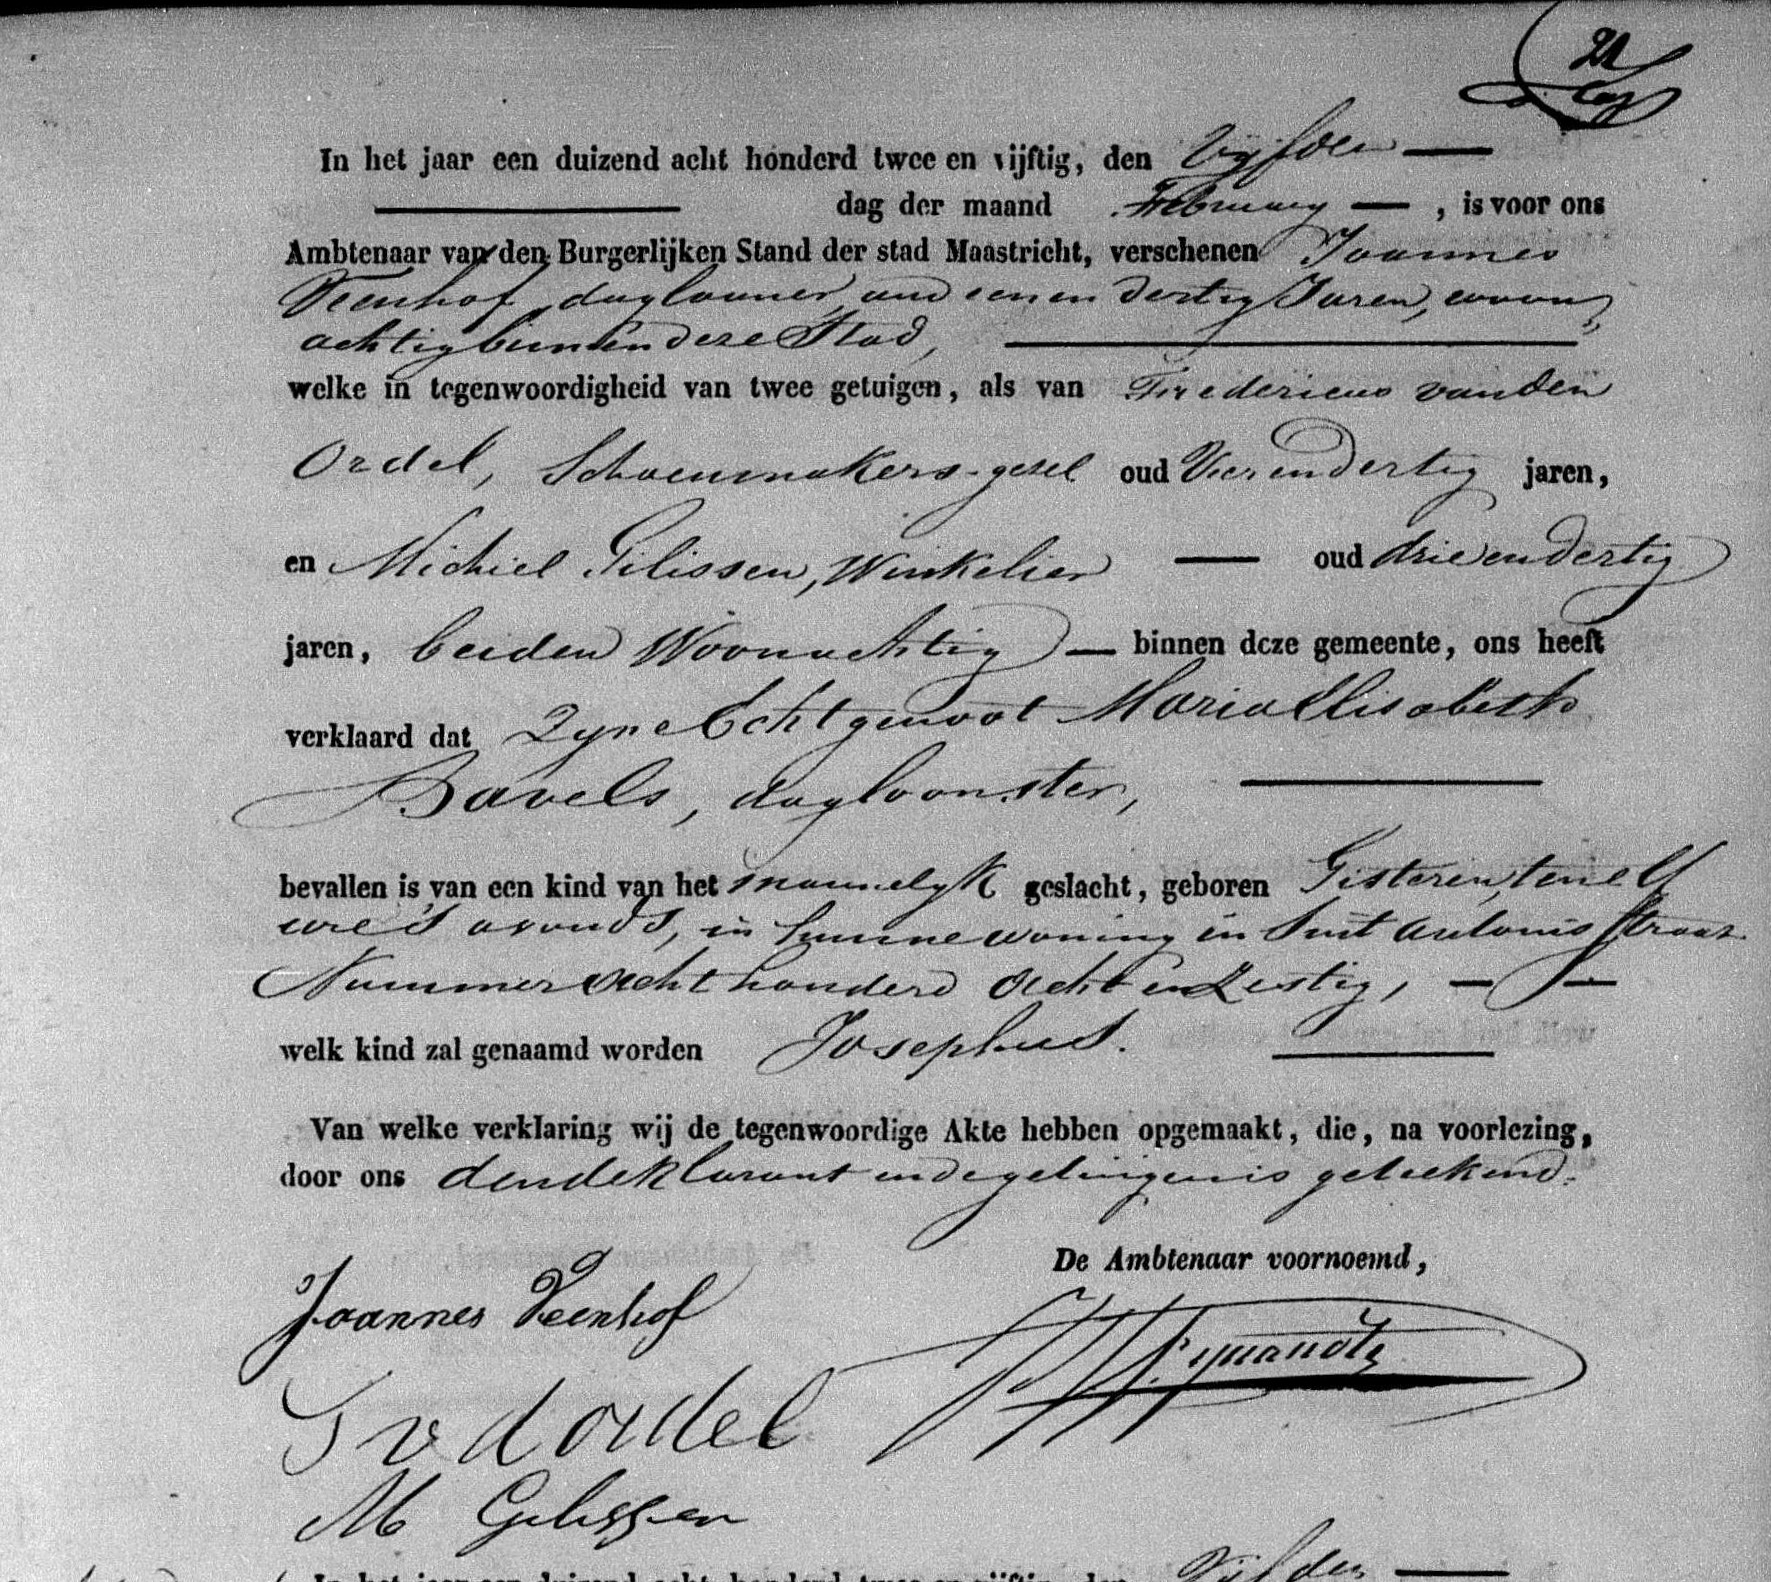 21
In het jaar een duizend acht honderd twee en vijftig, den Vyfden
dag der maand February, is voor ons
Ambtenaar van den Burgerlijken Stand der stad Maastricht, verschenen Joannes
Veenhof, daglooner, oud een en dertig Jaren, woon
achtig binnen deze Stad,
welke in tegenwoordigheid van twee getuigen, als van Fredericus van den
Ordel, Schoenmakers-gezel oud Vier en dertig jaren,
en Michiel Gilissen, Winkelier oud drie en dertig
jaren, beiden Woonachtig binnen deze gemeente, ons heeft
verklaard dat Zyne Echtgenoot Maria Elisabeth
Bavels, dagloonster,
bevallen is van een kind van het mannelyk geslacht, geboren Gisteren, ten elf
ure 's avonds, in hunne woning in Sint Antonis Straat
Nummer acht honderd acht en Zestig,
welk kind zal genaamd worden Josephus.
Van welke verklaring wij de tegenwoordige Akte hebben opgemaakt, die, na voorlezing,
door ons den deklarant en de getuigen is geteekend.
De Ambtenaar voornoemd,
Joannes Veenhof
F v d ordel
M Gelissen
In het jaar een duizend acht honderd twee en vijftig, den Vijfden